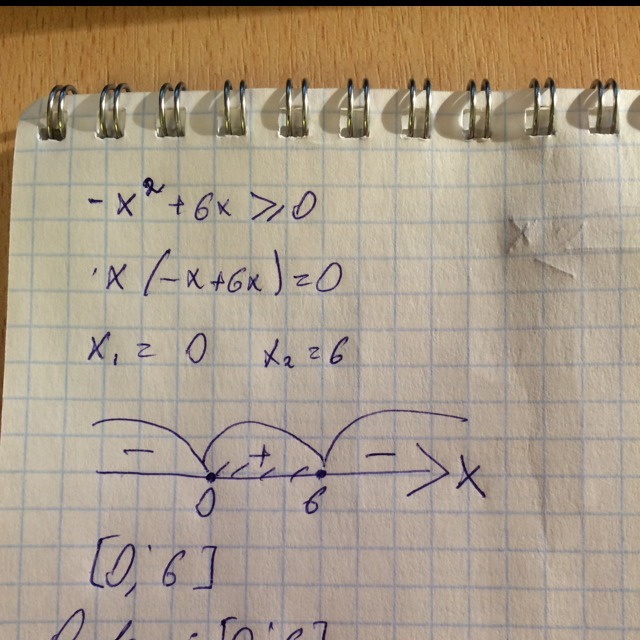 -x² + 6x ⩾ 0
x (-x+6x) = 0
x₁ = 0 x₂ = 6
- + -
0 6 x
[0; 6]
[0; 6]